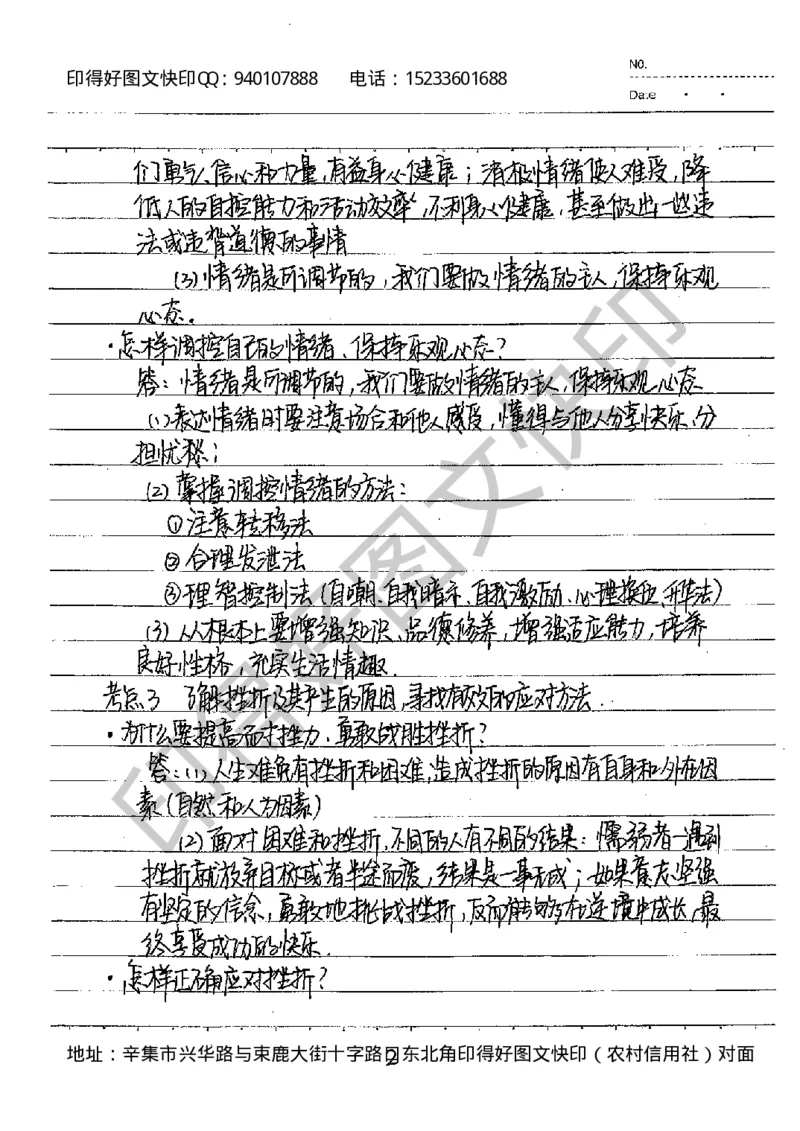 印得好图文快印QQ：940107888 电话：15233601688
NO.
Date
们勇气、信心和力量，有益身心健康；消极情绪使人难受，降
低人的自控能力和活动效率，不利身心健康，甚至做出一些违
法或违背道德的事情
(3)情绪是所调节的，我们要做情绪的主人，保持乐观
心态.
·怎样调控自己的情绪、保持乐观心态？
答：情绪是所调节的，我们要做情绪的主人，保持乐观心态
(1)表达情绪时要注意场合和他人感受，懂得与他人分享快乐、分
担忧愁；
(2)掌握调控情绪的方法：
①注意转移法
②合理发泄法
③理智控制法（自嘲、自我暗示、自我激励、心理换位、升华法）
(3)从根本上要增强知识、品德修养，增强适应能力，培养
良好性格，充实生活情趣.
考点3 了解挫折及其产生的原因，寻找有效的应对方法.
·为什么要提高耐挫力，勇敢战胜挫折？
答：(1)人生难免有挫折和困难，造成挫折的原因有自身和外在因
素（自然和人为因素）
(2)面对困难和挫折，不同的人有不同的结果：懦弱者一遇到
挫折就放弃目标或者半途而废，结果是一事无成；如果意志坚强
有坚定的信念，勇敢地挑战挫折，反而能够在逆境中成长，最
终享受成功的快乐.
·怎样正确应对挫折？
地址：辛集市兴华路与束鹿大街十字路口东北角印得好图文快印（农村信用社）对面
2
印得好图文快印